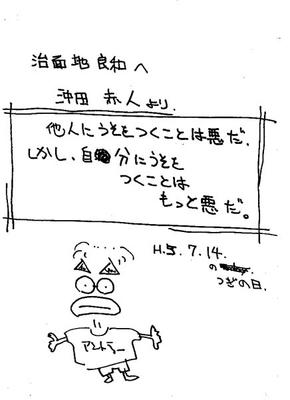 治面地 良和 へ
沖田 赤人 より.
他人にうそをつくことは悪だ.
しかし、自分にうそを
つくことは
もっと悪だ。
H.5.7.14.
の
つぎの日.